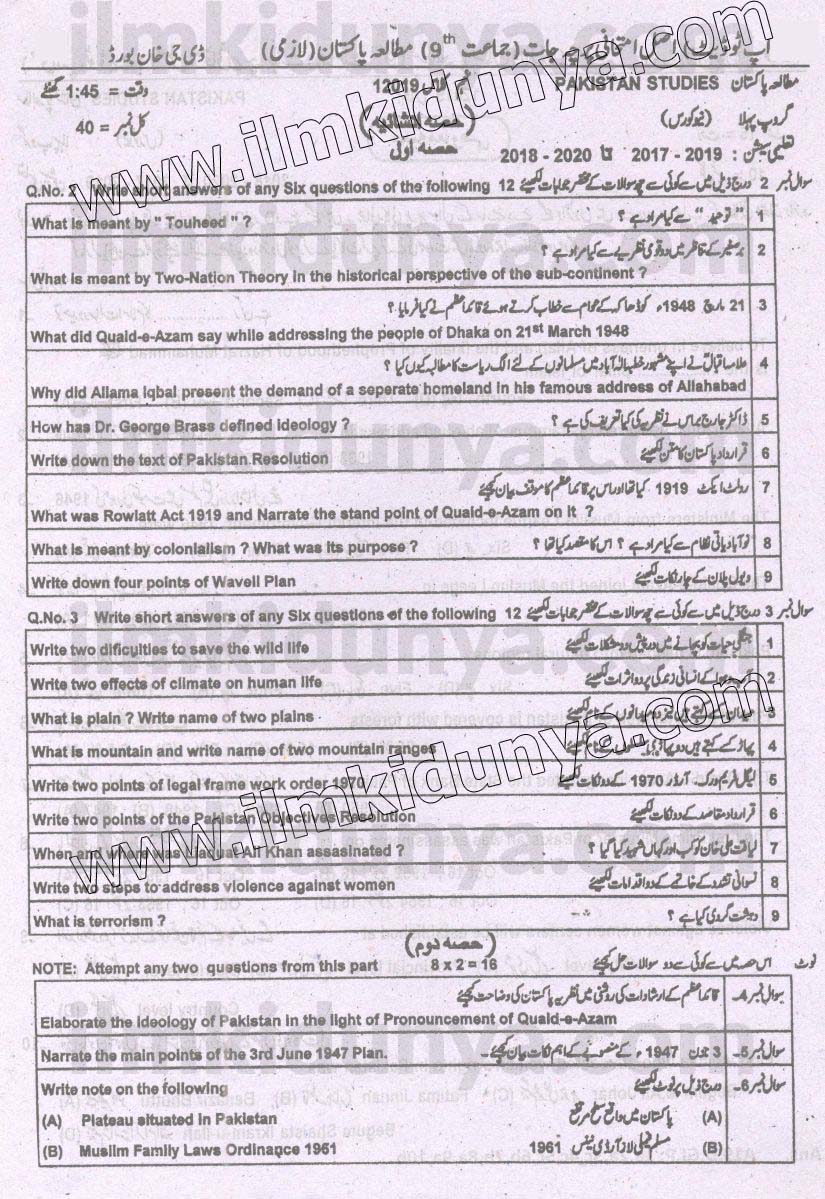 اپ ٹو ڈیٹ / اصل امتحانی پرچہ جات (جماعت 9th) مطالعہ پاکستان (لازمی) ڈی جی خان بورڈ
مطالعہ پاکستان PAKISTAN STUDIES 12019 وقت = 1:45 گھنٹے
گروپ پہلا (نیو کورس) حصہ انشائیہ کل نمبر = 40
تعلیمی سیشن : 2017 - 2019 تا 2018 - 2020 حصہ اول
سوال نمبر 2 درج ذیل میں سے کوئی سے چھ سوالات کے مختصر جوابات لکھیئے 12 Write short answers of any Six questions of the following Q.No.
1 "توحید" سے کیا مراد ہے ؟ What is meant by " Touheed " ?
2 برصغیر کے تناظر میں دو قومی نظریے سے کیا مراد ہے ؟
What is meant by Two-Nation Theory in the historical perspective of the sub-continent ?
3 21 مارچ 1948ء کو ڈھاکہ کے عوام سے خطاب کرتے ہوئے قائداعظم نے کیا فرمایا ؟
What did Quaid-e-Azam say while addressing the people of Dhaka on 21st March 1948
4 علامہ اقبال نے اپنے مشہور خطبہ الٰہ آباد میں مسلمانوں کے لئے الگ ریاست کا مطالبہ کیوں کیا ؟
Why did Allama Iqbal present the demand of a seperate homeland in his famous address of Allahabad
5 ڈاکٹر جارج براس نے نظریہ کی کیا تعریف کی ہے ؟ How has Dr. George Brass defined ideology ?
6 قرارداد پاکستان کا متن لکھیئے Write down the text of Pakistan Resolution
7 رولٹ ایکٹ 1919 کیا تھا اور اس پر قائداعظم کا موقف بیان کیجئے
What was Rowlatt Act 1919 and Narrate the stand point of Quaid-e-Azam on it ?
8 نوآبادیاتی نظام سے کیا مراد ہے ؟ اس کا مقصد کیا تھا ؟ What is meant by colonialism ? What was its purpose ?
9 ویول پلان کے چار نکات لکھیئے Write down four points of Wavell Plan
سوال نمبر 3 درج ذیل میں سے کوئی سے چھ سوالات کے مختصر جوابات لکھیئے 12 Write short answers of any Six questions of the following Q.No. 3
1 جنگلی حیات کو بچانے میں درپیش دو مشکلات لکھیئے Write two dificulties to save the wild life
2 کے انسانی زندگی پر دو اثرات لکھیئے Write two effects of climate on human life
3 میدان کسے کہتے ہیں What is plain ? Write name of two plains
4 پہاڑ کسے کہتے ہیں دو پہاڑی What is mountain and write name of two mountain ranges
5 لیگل فریم ورک آرڈر 1970 کے دو نکات لکھیئے Write two points of legal frame work order 1970
6 قرارداد مقاصد کے دو نکات لکھیئے Write two points of the Pakistan Objectives Resolution
7 لیاقت علی خان کو کب اور کہاں شہید کیا گیا ؟ When and where was Liaquat Ali Khan assasinated ?
8 نسوانی تشدد کے خاتمے کے دو اقدامات لکھیئے Write two steps to address violence against women
9 دہشت گردی کیا ہے ؟ What is terrorism ?
(حصہ دوم)
نوٹ اس حصہ میں سے کوئی سے دو سوالات حل کیجئے 8 x 2 = 16 NOTE: Attempt any two questions from this part
سوال نمبر 4- قائداعظم کے ارشادات کی روشنی میں نظریہ پاکستان کی وضاحت کیجئے
Elaborate the ideology of Pakistan in the light of Pronouncement of Quaid-e-Azam
سوال نمبر 5- 3 جون 1947ء کے منصوبے کے اہم نکات بیان کیجئے۔ Narrate the main points of the 3rd June 1947 Plan.
سوال نمبر 6- درج ذیل پر نوٹ لکھیئے Write note on the following
(A) پاکستان میں واقع سطح مرتفع (A) Plateau situated in Pakistan
(B) مسلم فیملی لاز آرڈی نینس 1961 (B) Muslim Family Laws Ordinance 1961
www.ilmkidunya.com
www.ilmkidunya.com
ilmkidunya.com